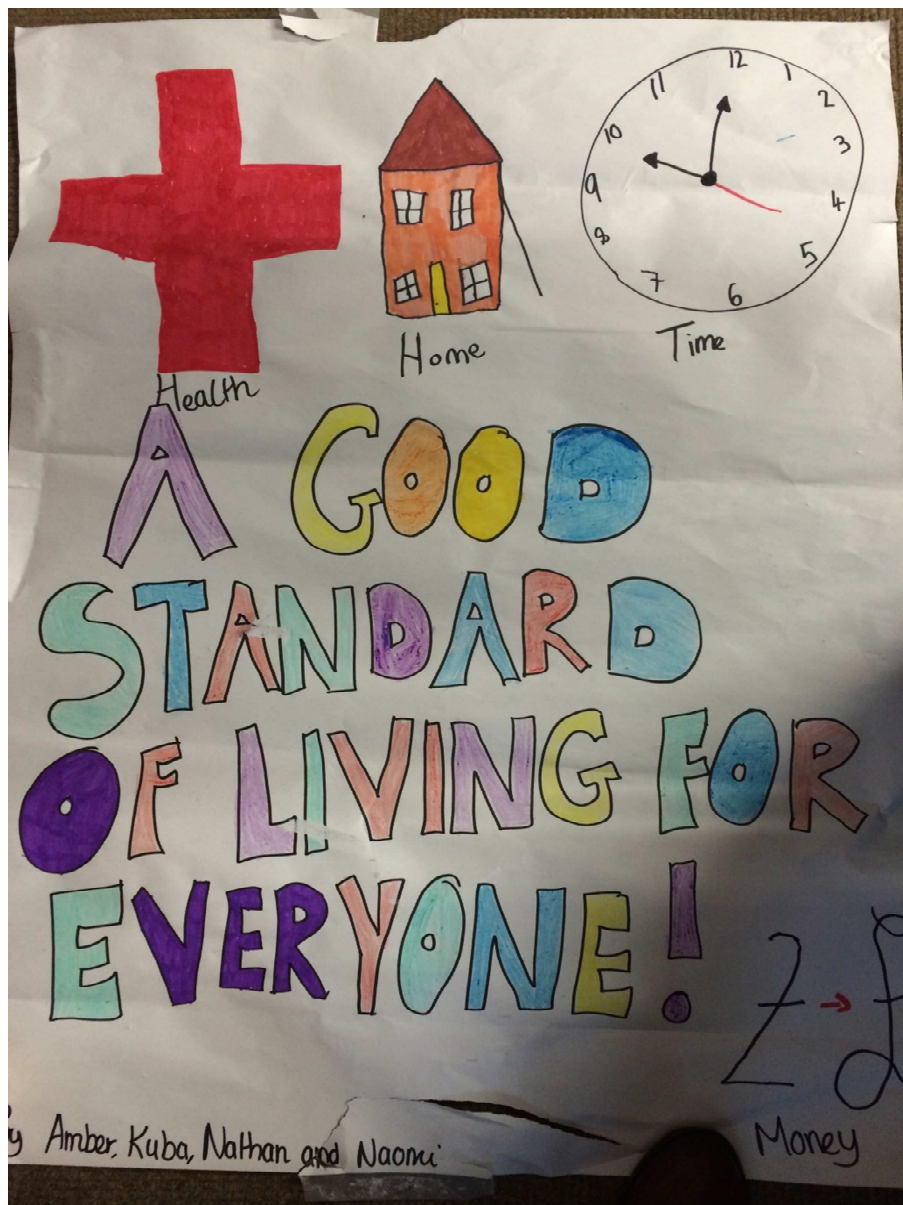 12
11 1
10 2
9 3
8 4
7 5
6
Health
Home
Time
A GOOD
STANDARD
OF LIVING FOR
EVERYONE!
Z → £
Money
y Amber, Kuba, Nathan and Naomi